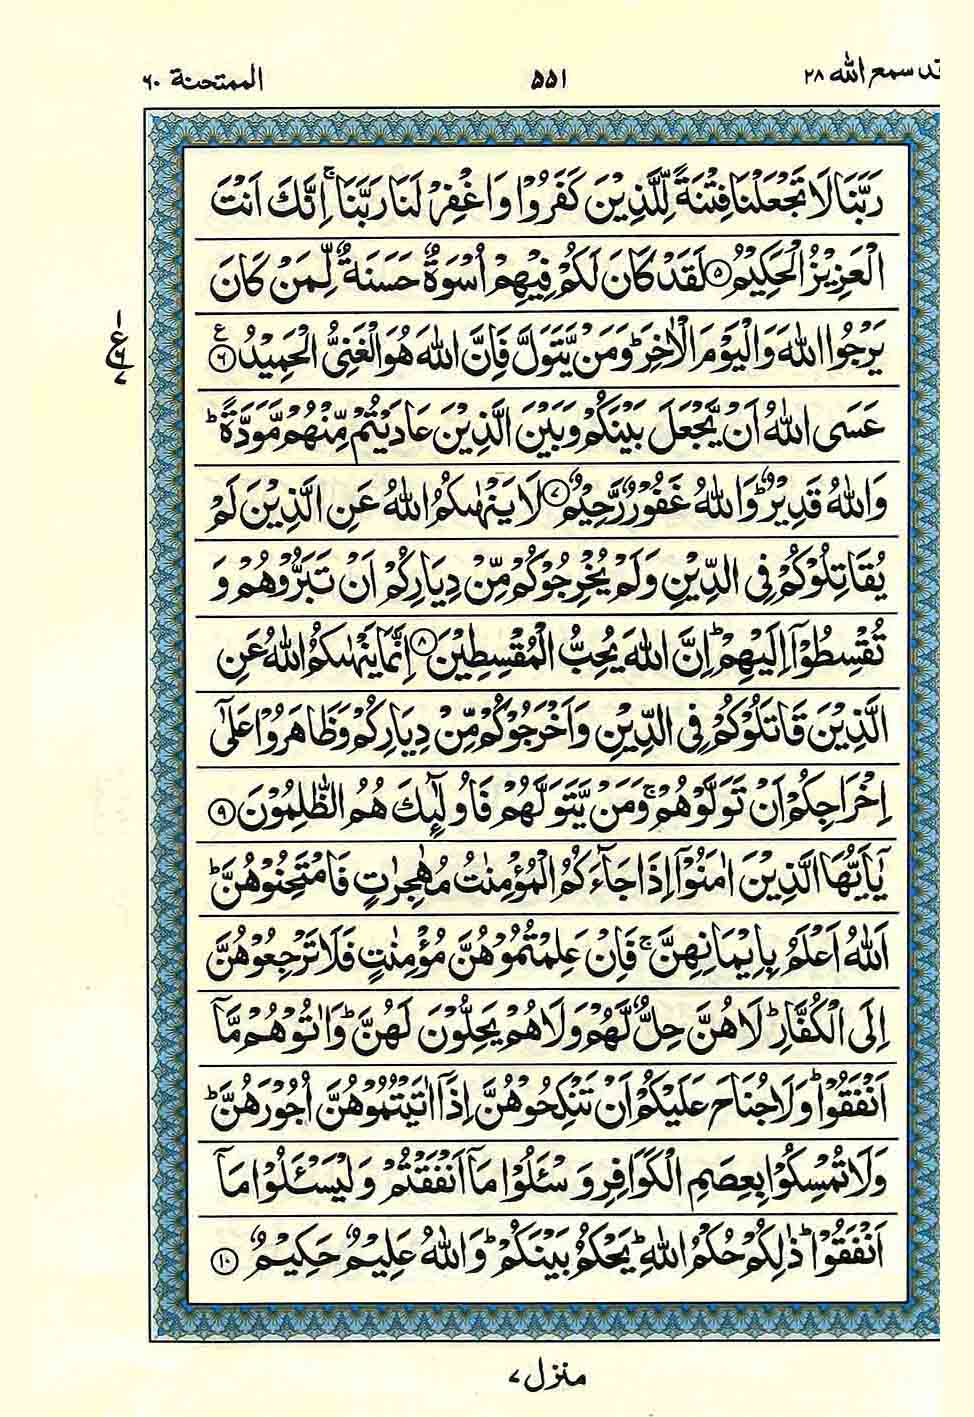 قد سمع الله ۲۸ ۵۵۱ الممتحنة ۶۰
رَبَّنَا لَا تَجْعَلْنَا فِتْنَةً لِّلَّذِيْنَ كَفَرُوْا وَاغْفِرْ لَنَا رَبَّنَا ۚ اِنَّكَ اَنْتَ
الْعَزِيْزُ الْحَكِيْمُ ۝۵ لَقَدْ كَانَ لَكُمْ فِيْهِمْ اُسْوَةٌ حَسَنَةٌ لِّمَنْ كَانَ
يَرْجُوا اللّٰهَ وَالْيَوْمَ الْاٰخِرَ ؕ وَمَنْ يَّتَوَلَّ فَاِنَّ اللّٰهَ هُوَ الْغَنِىُّ الْحَمِيْدُ ۝۶ ع
عَسَى اللّٰهُ اَنْ يَّجْعَلَ بَيْنَكُمْ وَبَيْنَ الَّذِيْنَ عَادَيْتُمْ مِّنْهُمْ مَّوَدَّةً ؕ
وَاللّٰهُ قَدِيْرٌ ؕ وَاللّٰهُ غَفُوْرٌ رَّحِيْمٌ ۝۷ لَا يَنْهٰىكُمُ اللّٰهُ عَنِ الَّذِيْنَ لَمْ
يُقَاتِلُوْكُمْ فِى الدِّيْنِ وَلَمْ يُخْرِجُوْكُمْ مِّنْ دِيَارِكُمْ اَنْ تَبَرُّوْهُمْ وَ
تُقْسِطُوْۤا اِلَيْهِمْ ؕ اِنَّ اللّٰهَ يُحِبُّ الْمُقْسِطِيْنَ ۝۸ اِنَّمَا يَنْهٰىكُمُ اللّٰهُ عَنِ
الَّذِيْنَ قَاتَلُوْكُمْ فِى الدِّيْنِ وَاَخْرَجُوْكُمْ مِّنْ دِيَارِكُمْ وَظَاهَرُوْا عَلٰۤى
اِخْرَاجِكُمْ اَنْ تَوَلَّوْهُمْ ۚ وَمَنْ يَّتَوَلَّهُمْ فَاُولٰٓئِكَ هُمُ الظّٰلِمُوْنَ ۝۹
يٰۤاَيُّهَا الَّذِيْنَ اٰمَنُوْۤا اِذَا جَآءَكُمُ الْمُؤْمِنٰتُ مُهٰجِرٰتٍ فَامْتَحِنُوْهُنَّ ؕ
اَللّٰهُ اَعْلَمُ بِاِيْمَانِهِنَّ ۚ فَاِنْ عَلِمْتُمُوْهُنَّ مُؤْمِنٰتٍ فَلَا تَرْجِعُوْهُنَّ
اِلَى الْكُفَّارِ ؕ لَا هُنَّ حِلٌّ لَّهُمْ وَلَا هُمْ يَحِلُّوْنَ لَهُنَّ ؕ وَاٰتُوْهُمْ مَّاۤ
اَنْفَقُوْا ؕ وَلَا جُنَاحَ عَلَيْكُمْ اَنْ تَنْكِحُوْهُنَّ اِذَاۤ اٰتَيْتُمُوْهُنَّ اُجُوْرَهُنَّ ؕ
وَلَا تُمْسِكُوْا بِعِصَمِ الْكَوَافِرِ وَسْئَلُوْا مَاۤ اَنْفَقْتُمْ وَلْيَسْئَلُوْا مَاۤ
اَنْفَقُوْا ؕ ذٰلِكُمْ حُكْمُ اللّٰهِ ؕ يَحْكُمُ بَيْنَكُمْ ؕ وَاللّٰهُ عَلِيْمٌ حَكِيْمٌ ۝۱۰
۱ ع ۶ ۷
منزل ۷